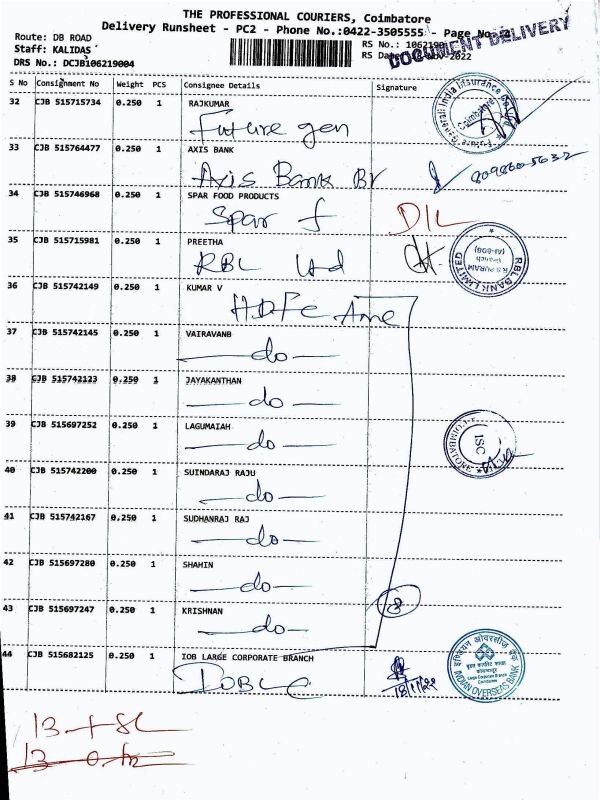 THE PROFESSIONAL COURIERS, Coimbatore
Delivery Runsheet - PC2 - Phone No.:0422-3505555 - Page No.
DOCUMENT DELIVERY
Route: DB ROAD
Staff: KALIDAS
RS No.:
DRS No.: DCJB106219004
S No Consignment No Weight PCS Consignee Details Signature
32 CJB 515715734 0.250 1 RAJKUMAR
Future gen
Future Generali India Insurance
Coimbatore
33 CJB 515764477 0.250 1 AXIS BANK
Axis Bank Br
34 CJB 515746968 0.250 1 SPAR FOOD PRODUCTS
Spar f D/L
35 CJB 515715981 0.250 1 PREETHA
RBL Ltd
RBL BANK LIMITED
R S PURAM
36 CJB 515742149 0.250 1 KUMAR V
HDFC Ame
37 CJB 515742145 0.250 1 VAIRAVANB
do
38 CJB 515742123 0.250 1 JAYAKANTHAN
do
39 CJB 515697252 0.250 1 LAGUMAIAH
do
ISC
COIMBATORE
40 CJB 515742200 0.250 1 SUINDARAJ RAJU
do
41 CJB 515742167 0.250 1 SUDHANRAJ RAJ
do
42 CJB 515697280 0.250 1 SHAHIN
do
8
43 CJB 515697247 0.250 1 KRISHNAN
do
44 CJB 515682125 0.250 1 IOB LARGE CORPORATE BRANCH
IOB LC
इंडियन ओवरसीज़ बैंक
Large Corporate Branch
INDIAN OVERSEAS BANK
13
13